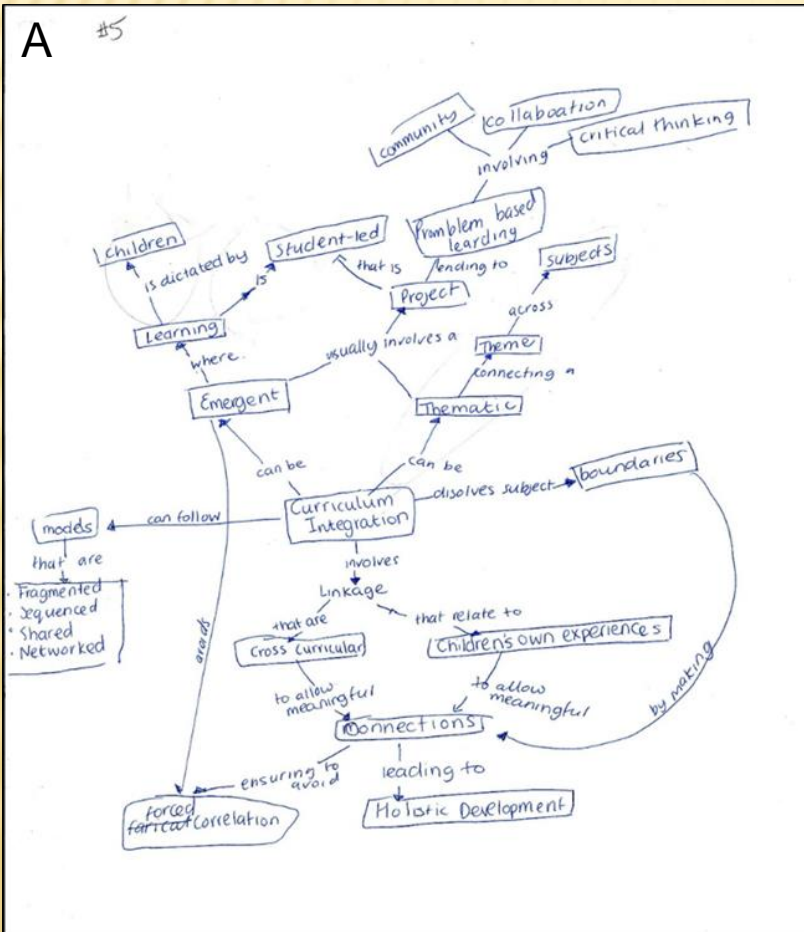 A
#5
community
collaboation
critical thinking
involving
Promblem based
learding
children
Student-led
subjects
is dictated by
is
that is
lending to
Project
across
Learning
Theme
where
usually involves a
connecting a
Emergent
Thematic
can be
can be
boundaries
disolves subject
Curriculum
Integration
can follow
models
that are
· Fragmented
· Sequenced
· Shared
· Networked
involves
Linkage
that are
that relate to
Cross curricular
Children's own experiences
avoids
to allow
meaningful
to allow
meaningful
by making
connections
ensuring to
avoid
leading to
forced
correlation
Holistic Development